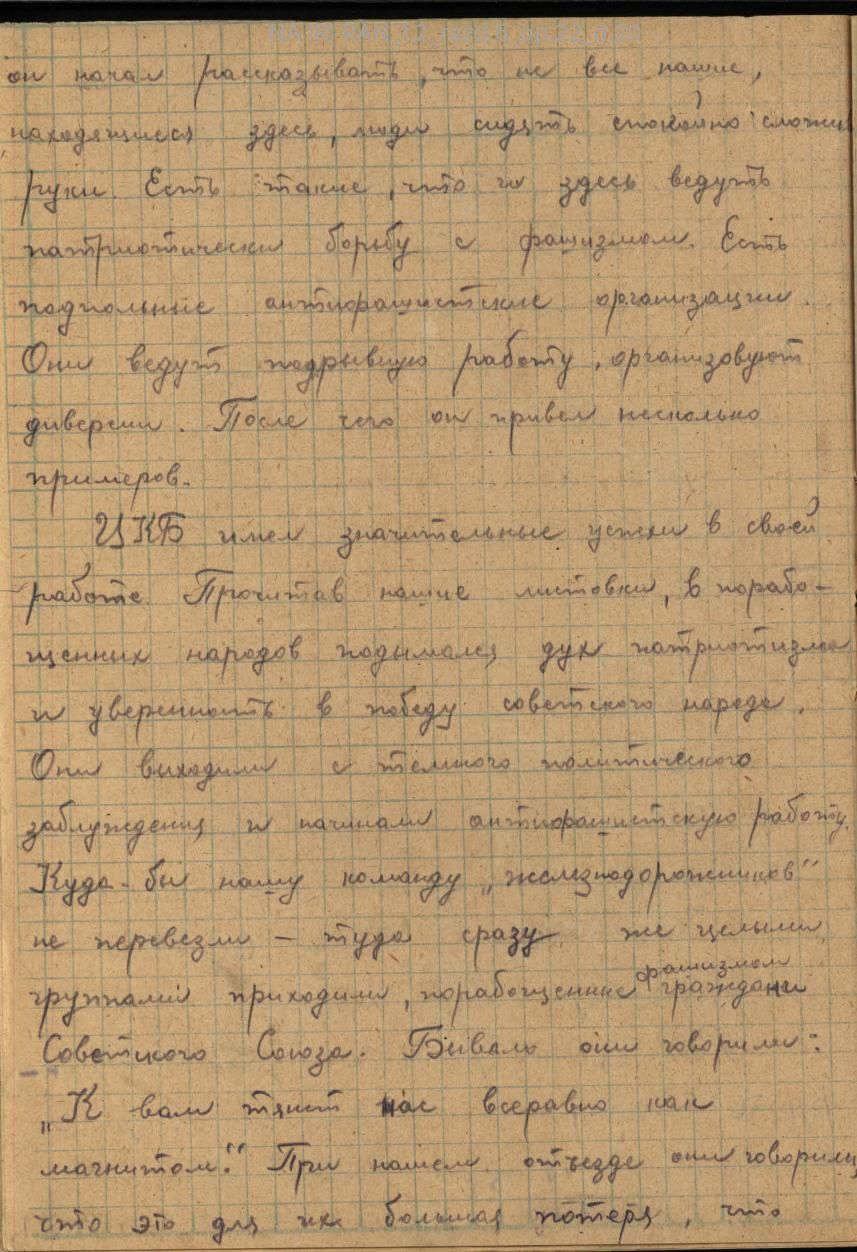 он начал рассказывать, что не все наше,
находящиеся здесь, люди сидять спокойно сложив
руки. Есть такие, что и здесь ведуть
патриотически борьбу с фашизмом. Есть
подпольные антифашистские организации.
Они ведут подрывную работу, организовуют
диверсии. После чего он привел несколько
примеров.
ЦКБ имел значительные успехи в своей
работе. Прочитав нашие листовки, в порабо-
щенных народов подымался дух патриотизма
и уверенность в победу советского народа.
Они выходили с темного политического
заблуждения и начинали антифашистскую работу.
Куда-бы нашу команду „железнодорожников“
не перевезли – туда сразу же целыми
группами приходили, порабощенные фашизмом граждани
Советского Союза. Бывало они говорили:
„К вам тянет нас всеравно как
магнитом“. При нашем отъезде они говорили,
что это для их большая потеря, что